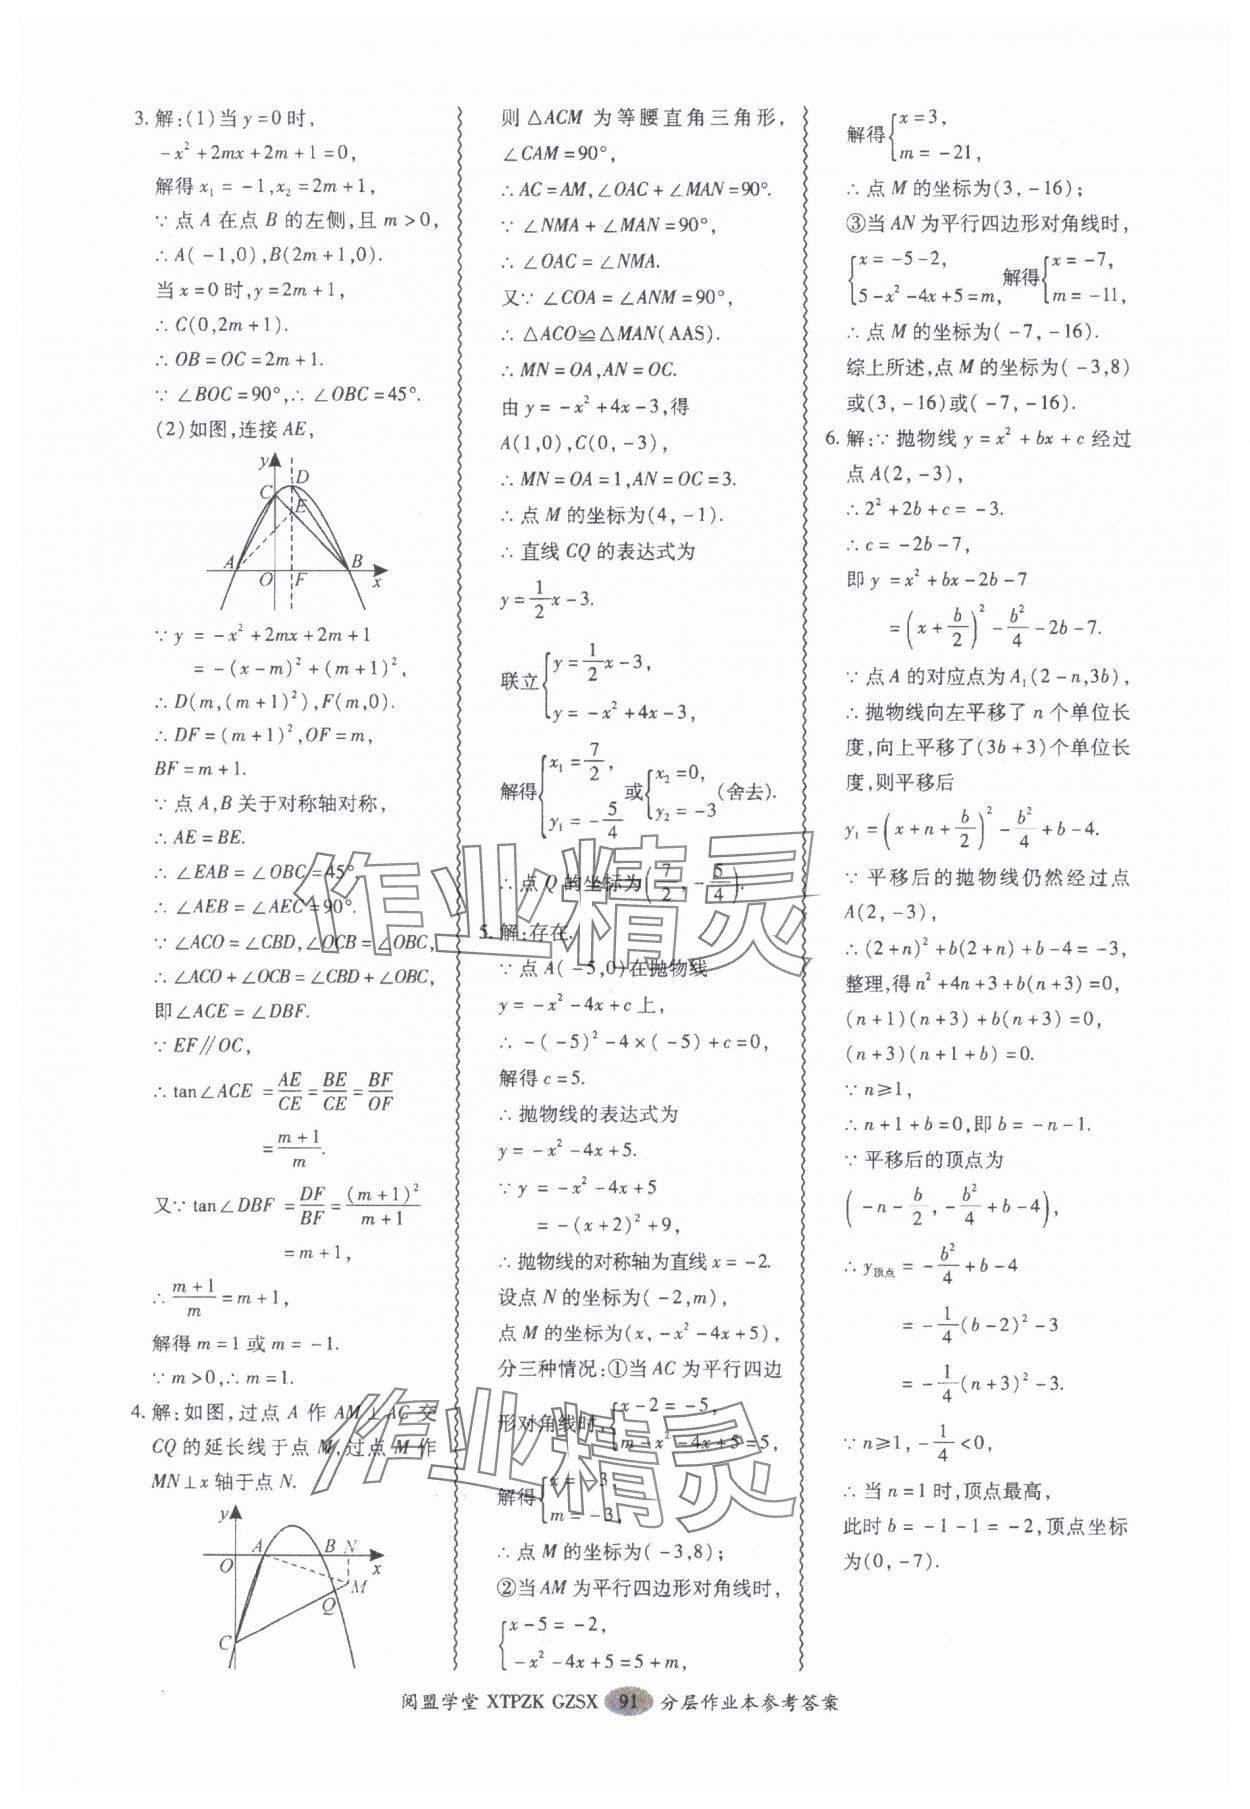 3. 解:(1)当 y=0 时,
-x²+2mx+2m+1=0,
解得 x₁ = -1,x₂=2m+1,
∵ 点 A 在点 B 的左侧,且 m>0,
∴ A( -1,0),B(2m+1,0).
当 x=0 时,y=2m+1,
∴ C(0,2m+1).
∴ OB=OC=2m+1.
∵ ∠BOC=90°,∴ ∠OBC=45°.
(2)如图,连接 AE,
y D C E A B O F x
∵ y = -x²+2mx+2m+1
= -(x-m)²+(m+1)²,
∴ D(m,(m+1)²),F(m,0).
∴ DF=(m+1)²,OF=m,
BF=m+1.
∵ 点 A,B 关于对称轴对称,
∴ AE=BE.
∴ ∠EAB=∠OBC=45°.
∴ ∠AEB=∠AEC=90°.
∵ ∠ACO=∠CBD,∠OCB=∠OBC,
∴ ∠ACO+∠OCB=∠CBD+∠OBC,
即∠ACE=∠DBF.
∵ EF∥OC,
∴ tan∠ACE = AE/CE = BE/CE = BF/OF
= (m+1)/m.
又∵ tan∠DBF = DF/BF = (m+1)²/(m+1)
=m+1,
∴ (m+1)/m = m+1,
解得 m=1 或 m= -1.
∵ m>0,∴ m=1.
4. 解:如图,过点 A 作 AM⊥AC 交
CQ 的延长线于点 M,过点 M 作
MN⊥x 轴于点 N.
y A B N O x M Q C
则 △ACM 为等腰直角三角形,
∠CAM=90°,
∴ AC=AM,∠OAC+∠MAN=90°.
∵ ∠NMA+∠MAN=90°,
∴ ∠OAC=∠NMA.
又∵ ∠COA=∠ANM=90°,
∴ △ACO≌△MAN(AAS).
∴ MN=OA,AN=OC.
由 y= -x²+4x-3,得
A(1,0),C(0,-3),
∴ MN=OA=1,AN=OC=3.
∴ 点 M 的坐标为(4,-1).
∴ 直线 CQ 的表达式为
y=1/2 x-3.
联立{y=1/2 x-3, y= -x²+4x-3,
解得{x₁=7/2, y₁= -5/4 或{x₂=0, y₂= -3 (舍去).
∴ 点 Q 的坐标为(7/2, -5/4).
5. 解:存在.
∵ 点 A( -5,0)在抛物线
y= -x²-4x+c 上,
∴ -( -5)²-4×( -5)+c=0,
解得 c=5.
∴ 抛物线的表达式为
y= -x²-4x+5.
∵ y = -x²-4x+5
= -(x+2)²+9,
∴ 抛物线的对称轴为直线 x= -2.
设点 N 的坐标为( -2,m),
点 M 的坐标为(x,-x²-4x+5),
分三种情况:①当 AC 为平行四边
形对角线时,{x-2= -5, m-x²-4x+5=5,
解得{x= -3, m= -3,
∴ 点 M 的坐标为( -3,8);
②当 AM 为平行四边形对角线时,
{x-5= -2, -x²-4x+5=5+m,
解得{x=3, m= -21,
∴ 点 M 的坐标为(3,-16);
③当 AN 为平行四边形对角线时,
{x= -5-2, 5-x²-4x+5=m, 解得{x= -7, m= -11,
∴ 点 M 的坐标为( -7,-16).
综上所述,点 M 的坐标为( -3,8)
或(3,-16)或( -7,-16).
6. 解:∵ 抛物线 y=x²+bx+c 经过
点 A(2,-3),
∴ 2²+2b+c= -3.
∴ c= -2b-7,
即 y =x²+bx-2b-7
=(x+b/2)²-b²/4-2b-7.
∵ 点 A 的对应点为 A₁(2-n,3b),
∴ 抛物线向左平移了 n 个单位长
度,向上平移了(3b+3)个单位长
度,则平移后
y₁=(x+n+b/2)²-b²/4+b-4.
∵ 平移后的抛物线仍然经过点
A(2,-3),
∴ (2+n)²+b(2+n)+b-4= -3,
整理,得 n²+4n+3+b(n+3)=0,
(n+1)(n+3)+b(n+3)=0,
(n+3)(n+1+b)=0.
∵ n≥1,
∴ n+1+b=0,即 b= -n-1.
∵ 平移后的顶点为
( -n-b/2, -b²/4+b-4),
∴ y顶点 = -b²/4+b-4
= -1/4(b-2)²-3
= -1/4(n+3)²-3.
∵ n≥1,-1/4<0,
∴ 当 n=1 时,顶点最高,
此时 b= -1-1= -2,顶点坐标
为(0,-7).
作业精灵
作业精灵
阅盟学堂 XTPZK GZSX 91 分层作业本参考答案